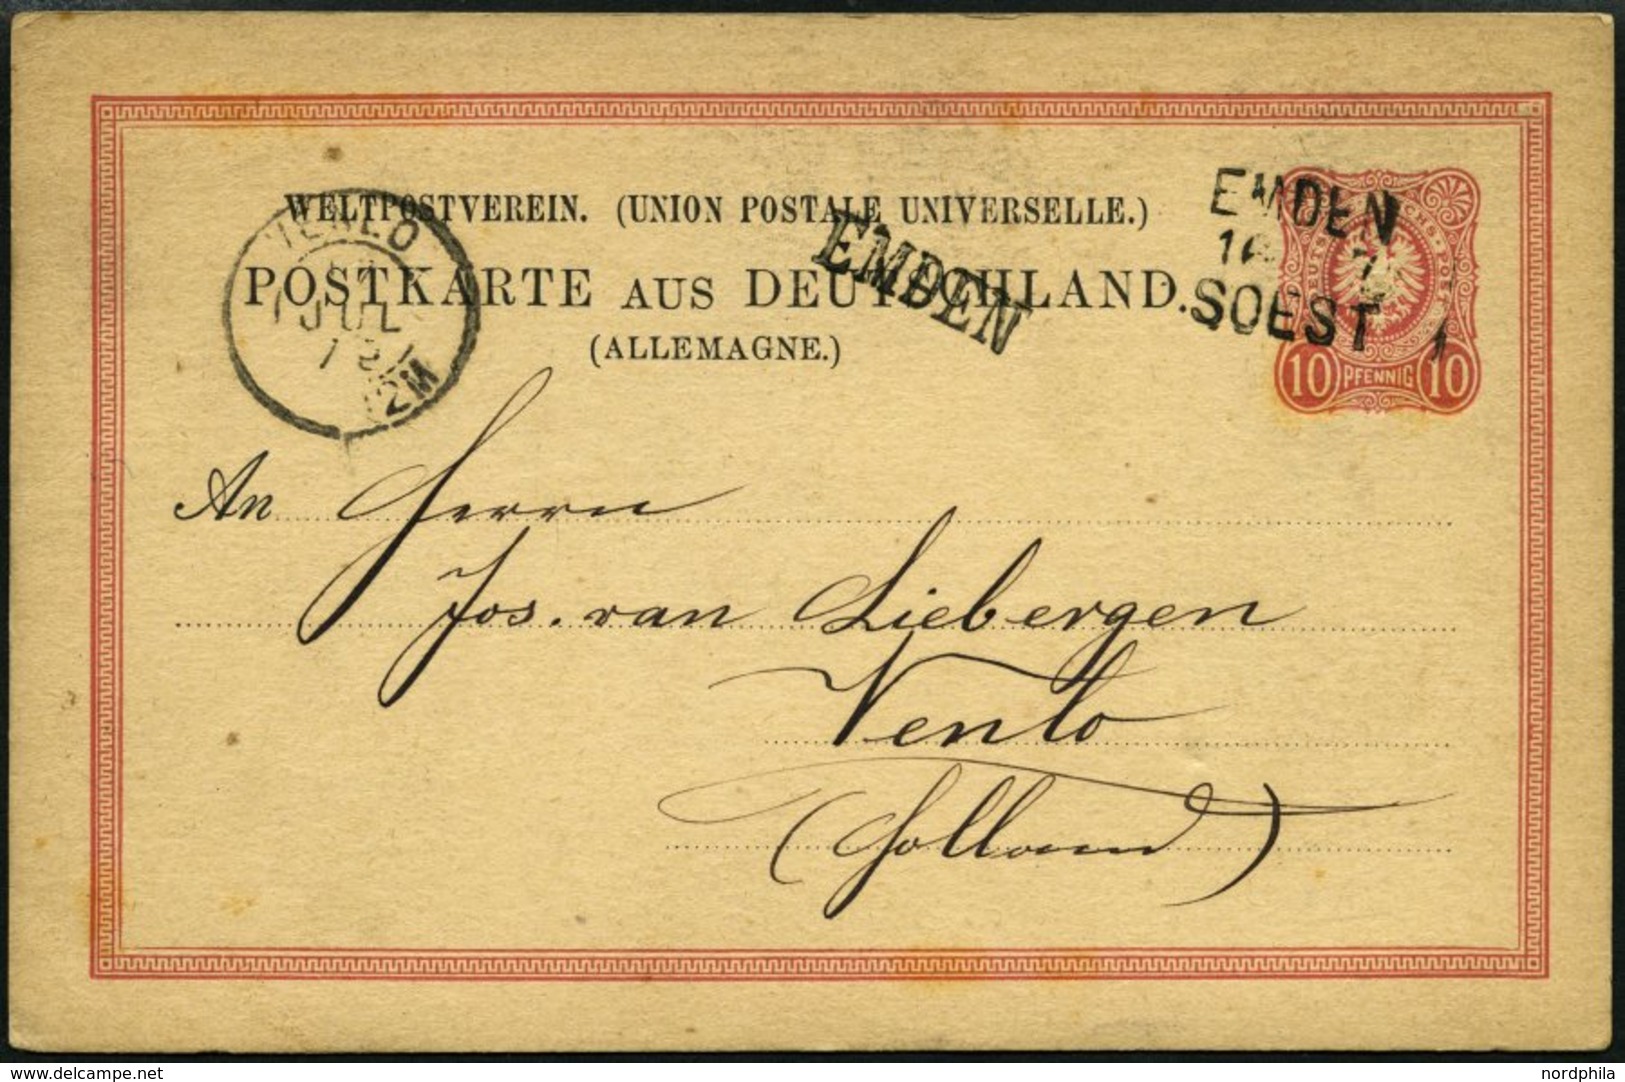 WELTPOSTVEREIN. (UNION POSTALE UNIVERSELLE.)
POSTKARTE AUS DEUTSCHLAND.
(ALLEMAGNE.)
VENLO
JUL
12M
EMDEN
EMDEN
SOEST
DEUTSCHE REICHS-POST
10 PFENNIG 10
An Herrn
Jos. van Liebergen
Venlo
(Holland)
www.delcampe.net
nordphila